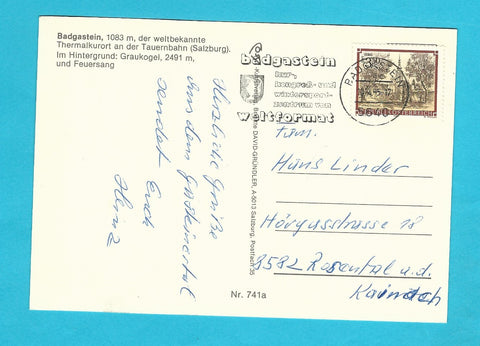 Badgastein, 1083 m, der weltbekannte
Thermalkurort an der Tauernbahn (Salzburg).
Im Hintergrund: Graukogel, 2491 m,
und Feuersang
Herzliche Grüße
aus dem Gasteinertal
sendet Euch
Heinz
DAVID-GRÜNDLER, A-5013 Salzburg, Postfach 35
badgastein
kur-,
kongreß- und
wintersport-
zentrum von
weltformat
S 6.40 ÖSTERREICH
Fam.
Hans Linder
Hörgasstrasse 18
8582 Rosental a.d.
Kainach
Nr. 741a